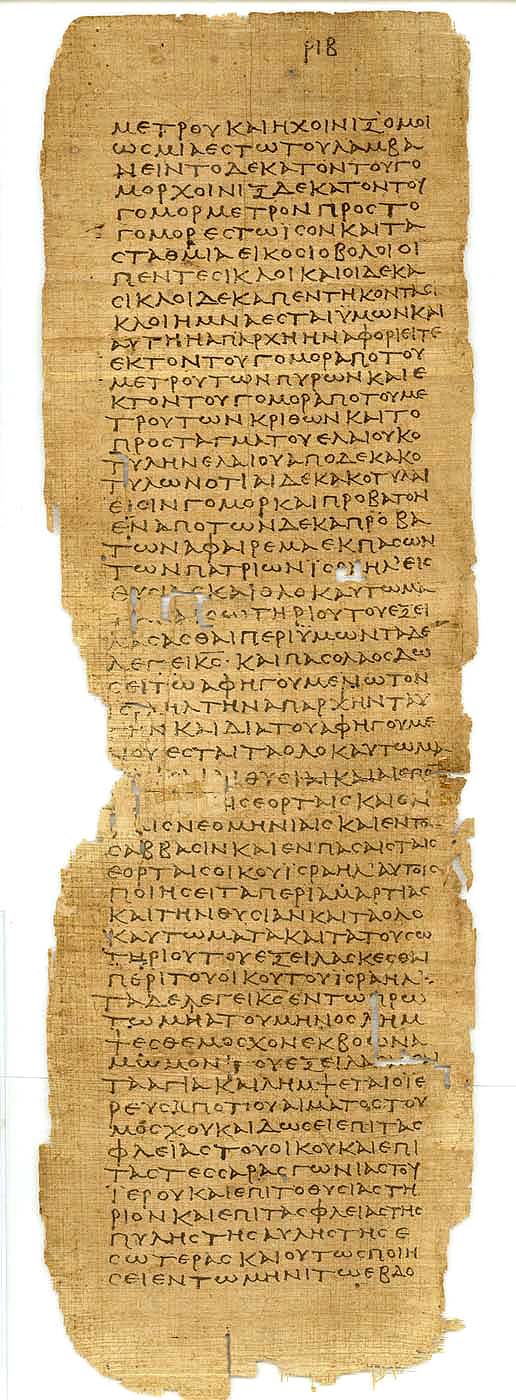 ΡΙΒ
ΜΕΤΡΟΥ ΚΑΙ Η ΧΟΙΝΙΞ ΟΜΟΙ
ΩΣ ΜΙΑ ΕΣΤΩ ΤΟΥ ΛΑΜΒΑ
ΝΕΙΝ ΤΟ ΔΕΚΑΤΟΝ ΤΟΥ ΓΟ
ΜΟΡ ΧΟΙΝΙΞ ΔΕΚΑΤΟΝ ΤΟΥ
ΓΟΜΟΡ ΜΕΤΡΟΝ ΠΡΟΣ ΤΟ
ΓΟΜΟΡ ΕΣΤΩ ΪΣΟΝ ΚΑΙ ΤΑ
ΣΤΑΘΜΙΑ ΕΙΚΟΣΙ ΟΒΟΛΟΙ ΟΙ
ΠΕΝΤΕ ΣΙΚΛΟΙ ΚΑΙ ΟΙ ΔΕΚΑ
ΣΙΚΛΟΙ ΔΕΚΑ ΠΕΝΤΗΚΟΝΤΑ ΣΙ
ΚΛΟΙ Η ΜΝΑ ΕΣΤΑΙ ΫΜΩΝ ΚΑΙ
ΑΥΤΗ Η ΑΠΑΡΧΗ ΗΝ ΑΦΟΡΙΕΙΤΕ
ΕΚΤΟΝ ΤΟΥ ΓΟΜΟΡ ΑΠΟ ΤΟΥ
ΜΕΤΡΟΥ ΤΩΝ ΠΥΡΩΝ ΚΑΙ Ε
ΚΤΟΝ ΤΟΥ ΓΟΜΟΡ ΑΠΟ ΤΟΥ ΜΕ
ΤΡΟΥ ΤΩΝ ΚΡΙΘΩΝ ΚΑΙ ΤΟ
ΠΡΟΣΤΑΓΜΑ ΤΟΥ ΕΛΑΙΟΥ ΚΟ
ΤΥΛΗΝ ΕΛΑΙΟΥ ΑΠΟ ΔΕΚΑ ΚΟ
ΤΥΛΩΝ ΟΤΙ ΑΙ ΔΕΚΑ ΚΟΤΥΛΑΙ
ΕΙΣΙΝ ΓΟΜΟΡ ΚΑΙ ΠΡΟΒΑΤΟΝ
ΕΝ ΑΠΟ ΤΩΝ ΔΕΚΑ ΠΡΟΒΑ
ΤΩΝ ΑΦΑΙΡΕΜΑ ΕΚ ΠΑΣΩΝ
ΤΩΝ ΠΑΤΡΙΩΝ ΕΙΣ
ΘΥΣΙΑΣ ΚΑΙ ΟΛΟΚΑΥΤΩΜΑ
ΣΩΤΗΡΙΟΥ ΤΟΥ ΕΞΕΙ
ΛΑΣΑΣΘΑΙ ΠΕΡΙ ΫΜΩΝ ΤΑΔΕ
ΛΕΓΕΙ ΚΣ· ΚΑΙ ΠΑΣ Ο ΛΑΟΣ ΔΩ
ΣΕΙ ΤΩ ΑΦΗΓΟΥΜΕΝΩ ΤΟΝ
ΙΣΡΑΗΛ ΤΗΝ ΑΠΑΡΧΗΝ ΤΑΥ
ΤΗΝ ΚΑΙ ΔΙΑ ΤΟΥ ΑΦΗΓΟΥΜΕ
ΝΟΥ ΕΣΤΑΙ ΤΑ ΟΛΟΚΑΥΤΩΜΑ
ΘΥΣΙΑΙ ΚΑΙ ΑΙ ΣΠΟ
ΕΟΡΤΑΙΣ ΚΑΙ ΕΝ
ΝΕΟΜΗΝΙΑΙΣ ΚΑΙ ΕΝ ΤΟΙΣ
ΣΑΒΒΑΣΙΝ ΚΑΙ ΕΝ ΠΑΣΑΙΣ ΤΑΙΣ
ΕΟΡΤΑΙΣ ΟΙΚΟΥ ΪΣΡΑΗΛ ΑΥΤΟΣ
ΠΟΙΗΣΕΙ ΤΑ ΠΕΡΙ ΑΜΑΡΤΙΑΣ
ΚΑΙ ΤΗΝ ΘΥΣΙΑΝ ΚΑΙ ΤΑ ΟΛΟ
ΚΑΥΤΩΜΑΤΑ ΚΑΙ ΤΑ ΤΟΥ ΣΩ
ΤΗΡΙΟΥ ΤΟΥ ΕΞΕΙΛΑΣΚΕΣΘΑΙ
ΠΕΡΙ ΤΟΥ ΟΙΚΟΥ ΤΟΥ ΪΣΡΑΗΛ·
ΤΑΔΕ ΛΕΓΕΙ ΚΣ ΕΝ ΤΩ ΠΡΩ
ΤΩ ΜΗΝΙ ΜΙΑ ΤΟΥ ΜΗΝΟΣ ΛΗΜ
ΨΕΣΘΕ ΜΟΣΧΟΝ ΕΚ ΒΟΩΝ Α
ΜΩΜΟΝ ΤΟΥ ΕΞΕΙΛΑΣΑΣΘΑΙ
ΤΑ ΑΓΙΑ ΚΑΙ ΛΗΜΨΕΤΑΙ Ο ΙΕ
ΡΕΥΣ ΑΠΟ ΤΟΥ ΑΙΜΑΤΟΣ ΤΟΥ
ΜΟΣΧΟΥ ΚΑΙ ΔΩΣΕΙ ΕΠΙ ΤΑΣ
ΦΛΕΙΑΣ ΤΟΥ ΟΙΚΟΥ ΚΑΙ ΕΠΙ
ΤΑΣ ΤΕΣΣΑΡΑΣ ΓΩΝΙΑΣ ΤΟΥ
ΪΕΡΟΥ ΚΑΙ ΕΠΙ ΤΟ ΘΥΣΙΑΣΤΗ
ΡΙΟΝ ΚΑΙ ΕΠΙ ΤΑΣ ΦΛΕΙΑΣ ΤΗΣ
ΠΥΛΗΣ ΤΗΣ ΑΥΛΗΣ ΤΗΣ Ε
ΣΩΤΕΡΑΣ ΚΑΙ ΟΥΤΩΣ ΠΟΙΗ
ΣΕΙ ΕΝ ΤΩ ΜΗΝΙ ΤΩ ΕΒΔΟ